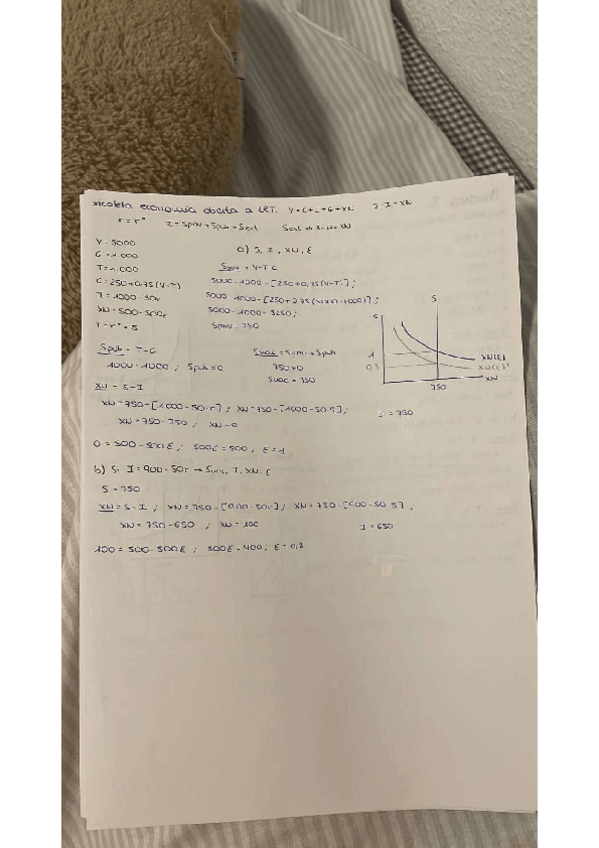 economía abierta a LP. Y=C+I+G+XN S-I=XN
r=r* I=Spriv+Spub+Sext
Y=5000
G=1.000
T=1.000
C=250+0,75(Y-T)
I=1000-50r
XN=500-500ε
r=r*=5
a) S, I, XN, ε
Spriv=Y-T-C
5000-1000-[250+0,75(Y-T)];
5000-1000-[250+0,75(5000-1000)];
5000-1000-3250;
Spriv=750
Spub=T-G
1000-1000; Spub=0
Snac=Spriv+Spub
750+0
Snac=750
XN=S-I
XN=750-[1000-50·r]; XN=750-[1000-50·5];
XN=750-750, XN=0
I=750
0=500-500ε; 500ε=500; ε=1
S
ε
1
0,8
XN(ε)
XN(ε)'
XN
750
b) Si I=900-50r → Snac, I, XN, ε
S=750
XN=S-I; XN=750-[900-50r]; XN=750-[900-50·5];
XN=750-650; XN=100
I=650
100=500-500ε; 500ε=400; ε=0,8